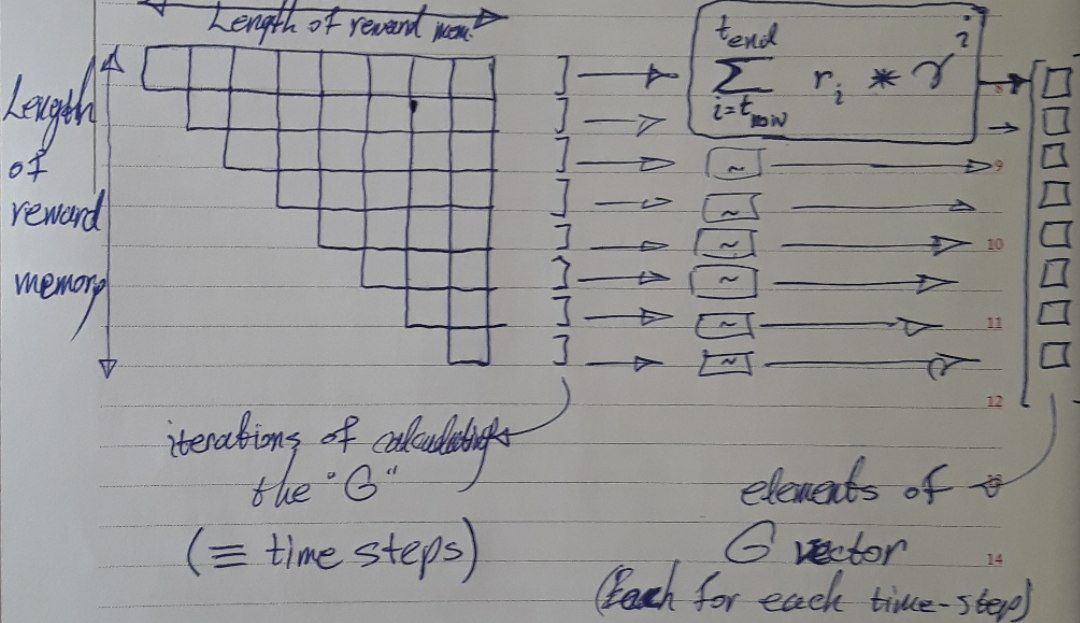 Length of reward mem.
Length
of
reward
memory
t end
∑ r i * γ i
i = t now
]
]
]
]
]
]
]
]
~
~
~
~
~
~
8
9
10
11
12
14
iterations of calculating
the "G"
(≡ time steps)
elements of
G vector
(Each for each time-step)